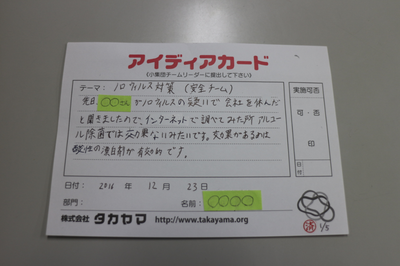 アイディアカード
(小集団チームリーダーに提出して下さい)
テーマ: ノロウィルス対策 (安全チーム)
実施可否
先日、○○さんがノロウィルスの疑いで会社を休んだ
と聞きましたので、インターネットで調べてみた所アルコー
ル除菌では効果ないみたいです。効果があるのは
酸性の漂白剤が有効めです。
可・否
印
日付
日付: 2016 年 12 月 23日
部門:
名前: ○○○○
済 1/5
株式会社 タカヤマ http://www.takayama.org